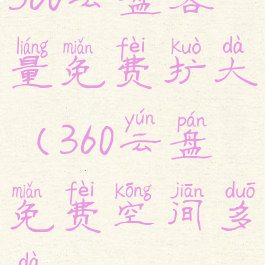 360云盘容
liáng miǎn fèi kuò dà
量免费扩大
yún pán
(360云盘
miǎn fèi kōng jiān duō
免费空间多
dà